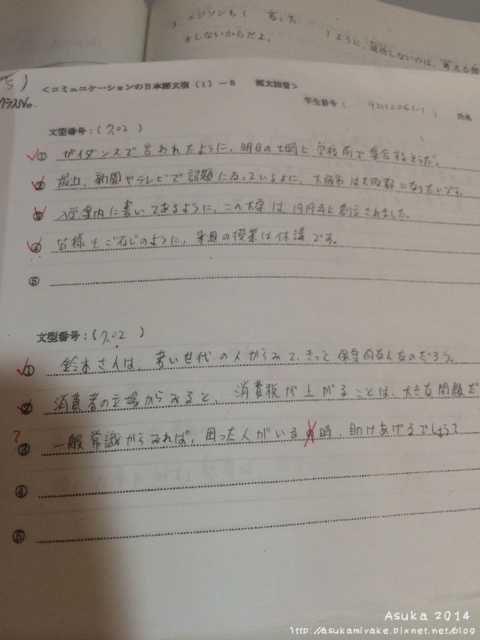 3. エジソンも（　言った　）ように、成功しないのは、考える努
をしないからだよ。
5）
クラスNo.
＜コミュニケーションの日本語文型（1）－5　短文練習＞
学生番号（
氏名
文型番号：（7.02）
① ガイダンスで言われたように、明日の土曜は学校前で集合するそうだ。
② 最近、新聞やテレビで話題になっているように、大阪市は大阪都になりたいです。
③ 入学案内に書いてあるように、この大学は1919年に創立されました。
④ 皆様もご存じのように、来週の授業は休講です。
⑤
文型番号：（7.02）
① 鈴木さんは、若い世代の人からみて、きっと保守的な人なのだろう。
② 消費者の立場からみると、消費税が上がることは、大きな問題だ
? ③ 一般常識からみれば、困った人がいる時、助けあげるでしょう？
④
⑤
Asuka 2014
http://asukamiyake.pixnet.net/blog